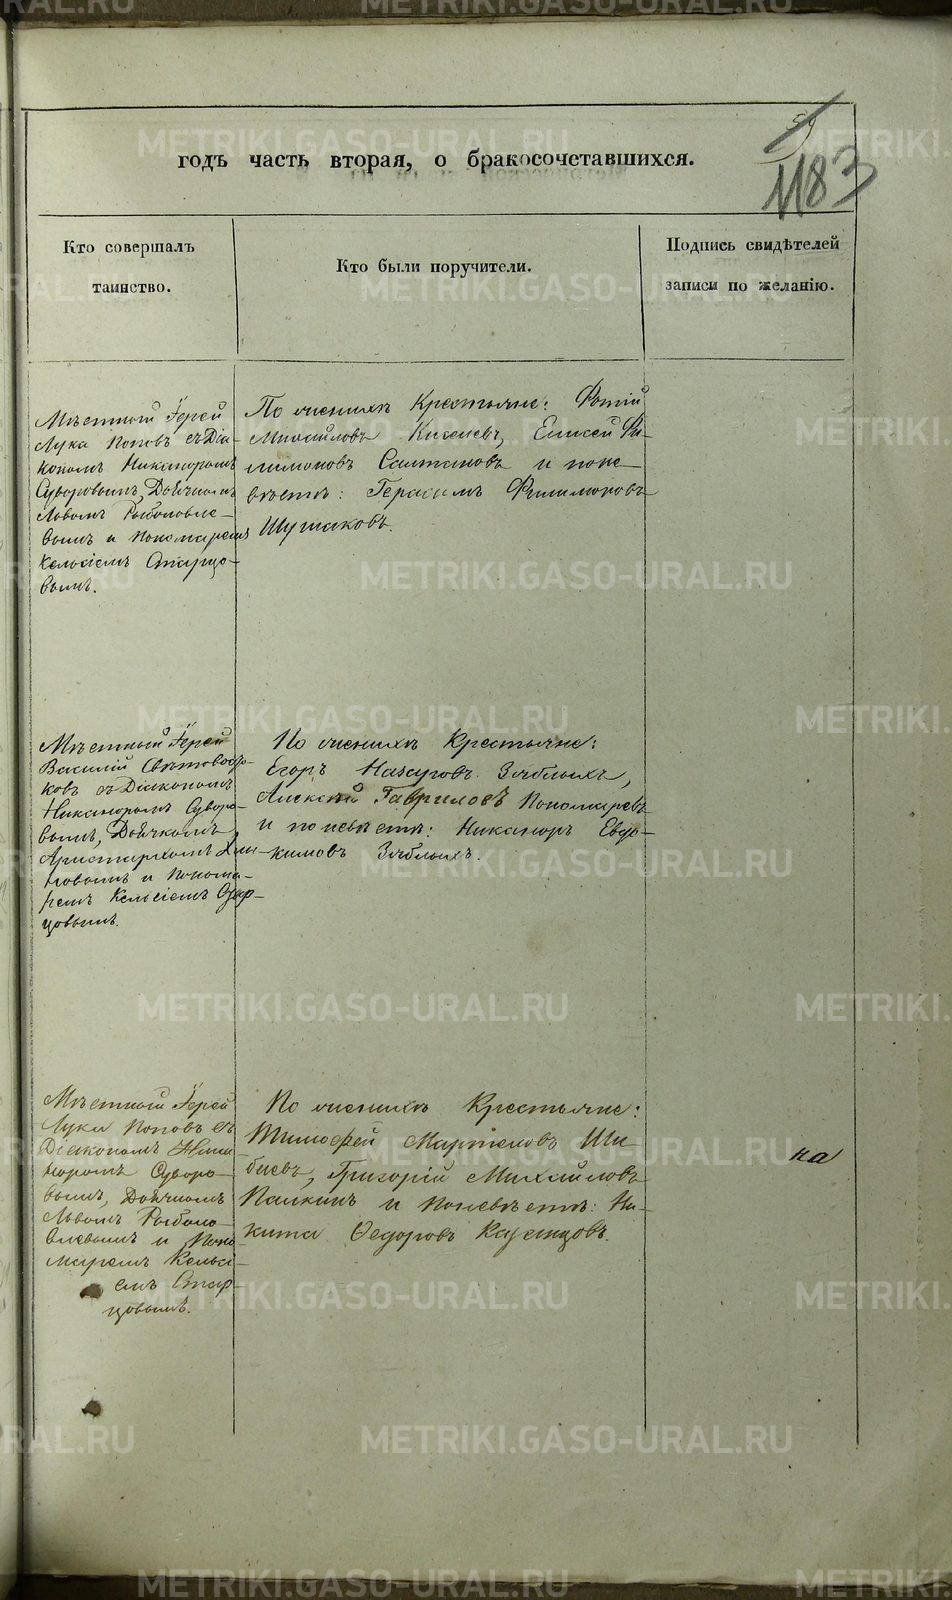 59
1183
годъ часть вторая, о бракосочетавшихся.
Кто совершалъ
таинство.
Кто были поручители.
Подпись свидѣтелей
записи по желанію.
Мѣстный Іерей
Лука Поповъ съ Діа-
кономъ Никаноромъ
Суворовымъ, Дьячкомъ
Львомъ Рыболовле-
вымъ и Пономаремъ
Кельсіемъ Старцо-
вымъ.
По женихѣ Крестьяне: Фотій
Михайловъ Киселевъ, Елисей Фи-
лимоновъ Салтановъ и по не-
вѣстѣ: Герасимъ Филимоновъ
Мѣстный Іерей
Василій
ковъ съ Діакономъ
Никаноромъ Суворо-
вымъ, Дьячкомъ
Аристархомъ Хлы-
новымъ и Понома-
ремъ Кельсіемъ Стар-
цовымъ.
По женихѣ Крестьяне:
Егоръ Назаровъ Зяблыхъ,
Алексѣй Гавриловъ Пономаревъ
и по невѣстѣ: Никаноръ Евдо-
кимовъ Зяблыхъ.
Мѣстный Іерей
Лука Поповъ съ
Діакономъ Ника-
норомъ Суворо-
вымъ, Дьячкомъ
Львомъ Рыболо-
влевымъ и Поно-
маремъ Кельсі-
емъ Стар-
цовымъ.
По женихѣ Крестьяне:
Тимофей Мартемовъ Ши-
баевъ, Григорій Михайловъ
Палкинъ и по невѣстѣ: Ни-
кита Ѳедоровъ Казанцовъ.
на
METRIKI.GASO-URAL.RU